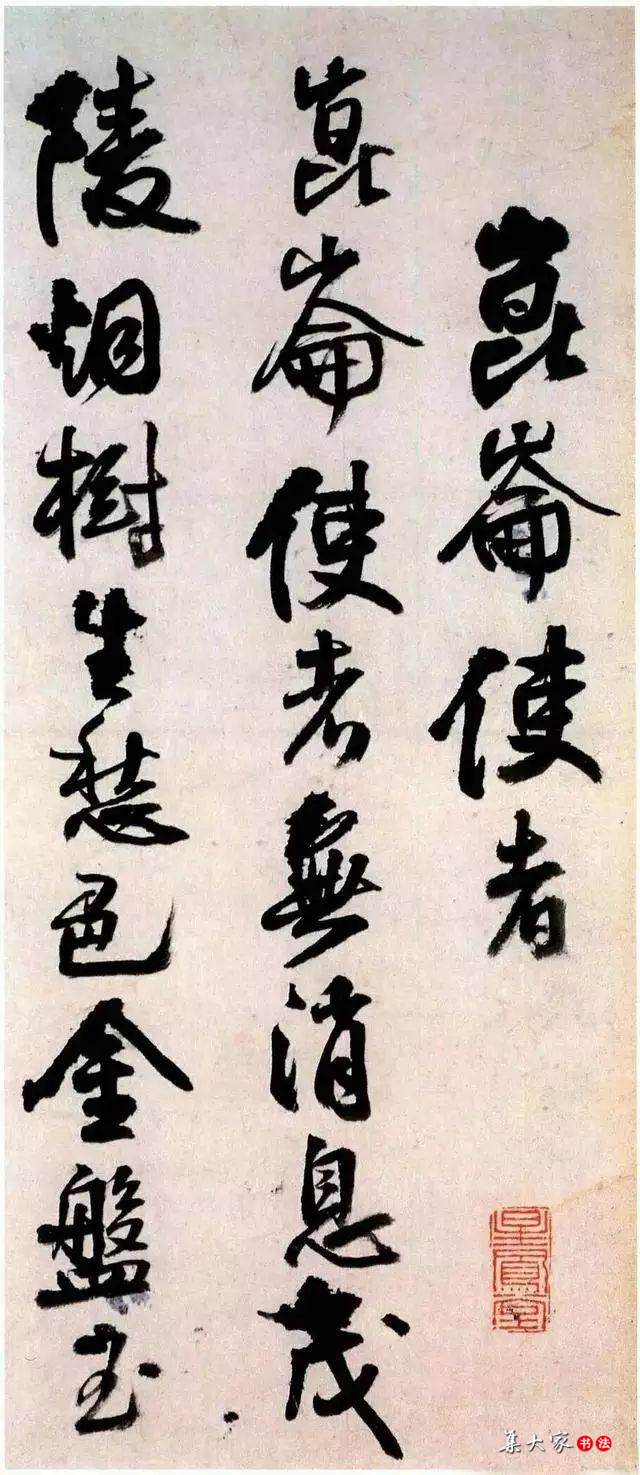 崑崙使者
崑崙使者無消息茂
陵烟樹生愁色金盤玉
集大家书法